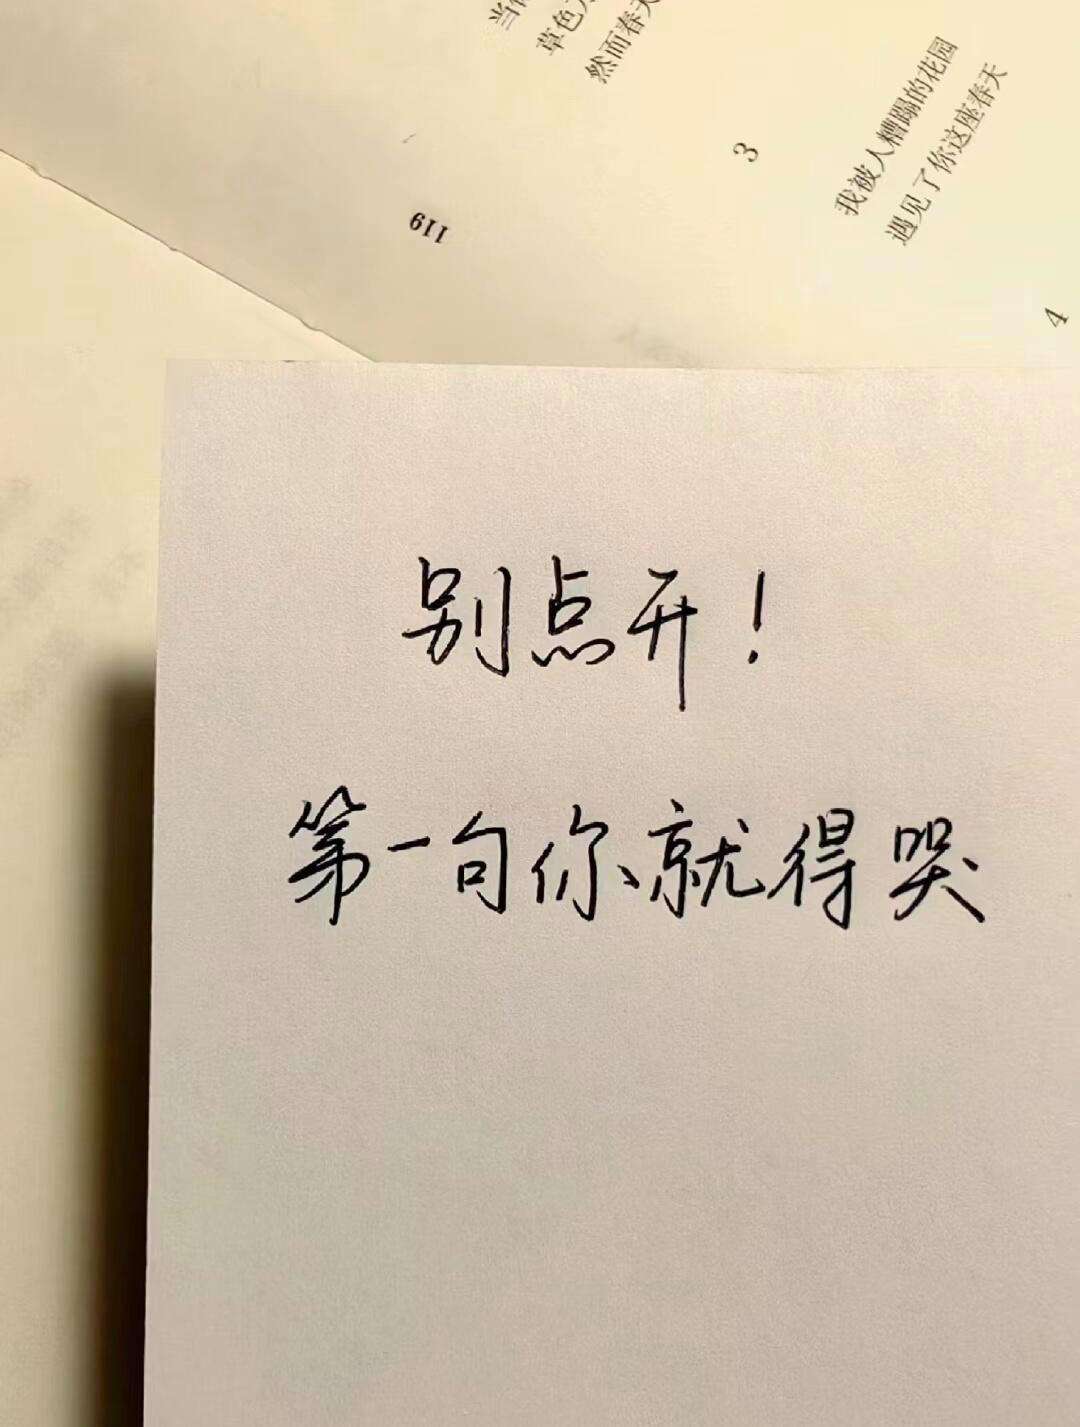 草色
然而春天
3
我被人糟蹋的花园
遇见了你这座春天
4
119
别点开！
第一句你就得哭